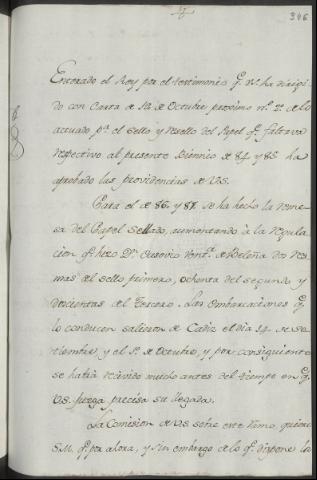 346
Enterado el Rey por el testimonio q.e V.S. ha dirigi-
do con Carta de de Octubre proximo n.º 2.º de lo
actuado p.a el sello y resello del Papel q.e faltava
respectivo al presente Biennio de 84 y 85 ha
aprobado las providencias de V.S.
Para el de 86 y 87 se ha hecho la reme-
sa del Papel Sellado, aumentando à la Regula-
cion q.e hizo D.n de Beleña dos Res-
mas del sello primero, ochenta del segundo, y
doscientas del tercero. Las embarcaciones q.e
lo conducen salieron de Cadiz el dia 14 de Se-
tiembre, y el 5 de Octubre, y por consiguiente
se habrá recivido mucho antes del tiempo en q.e
V.S. juzga precisa su llegada.
La Comision de V.S. sobre este Ramo, quiere
S.M. q.e por ahora, y sin embargo de lo q.e dispone la